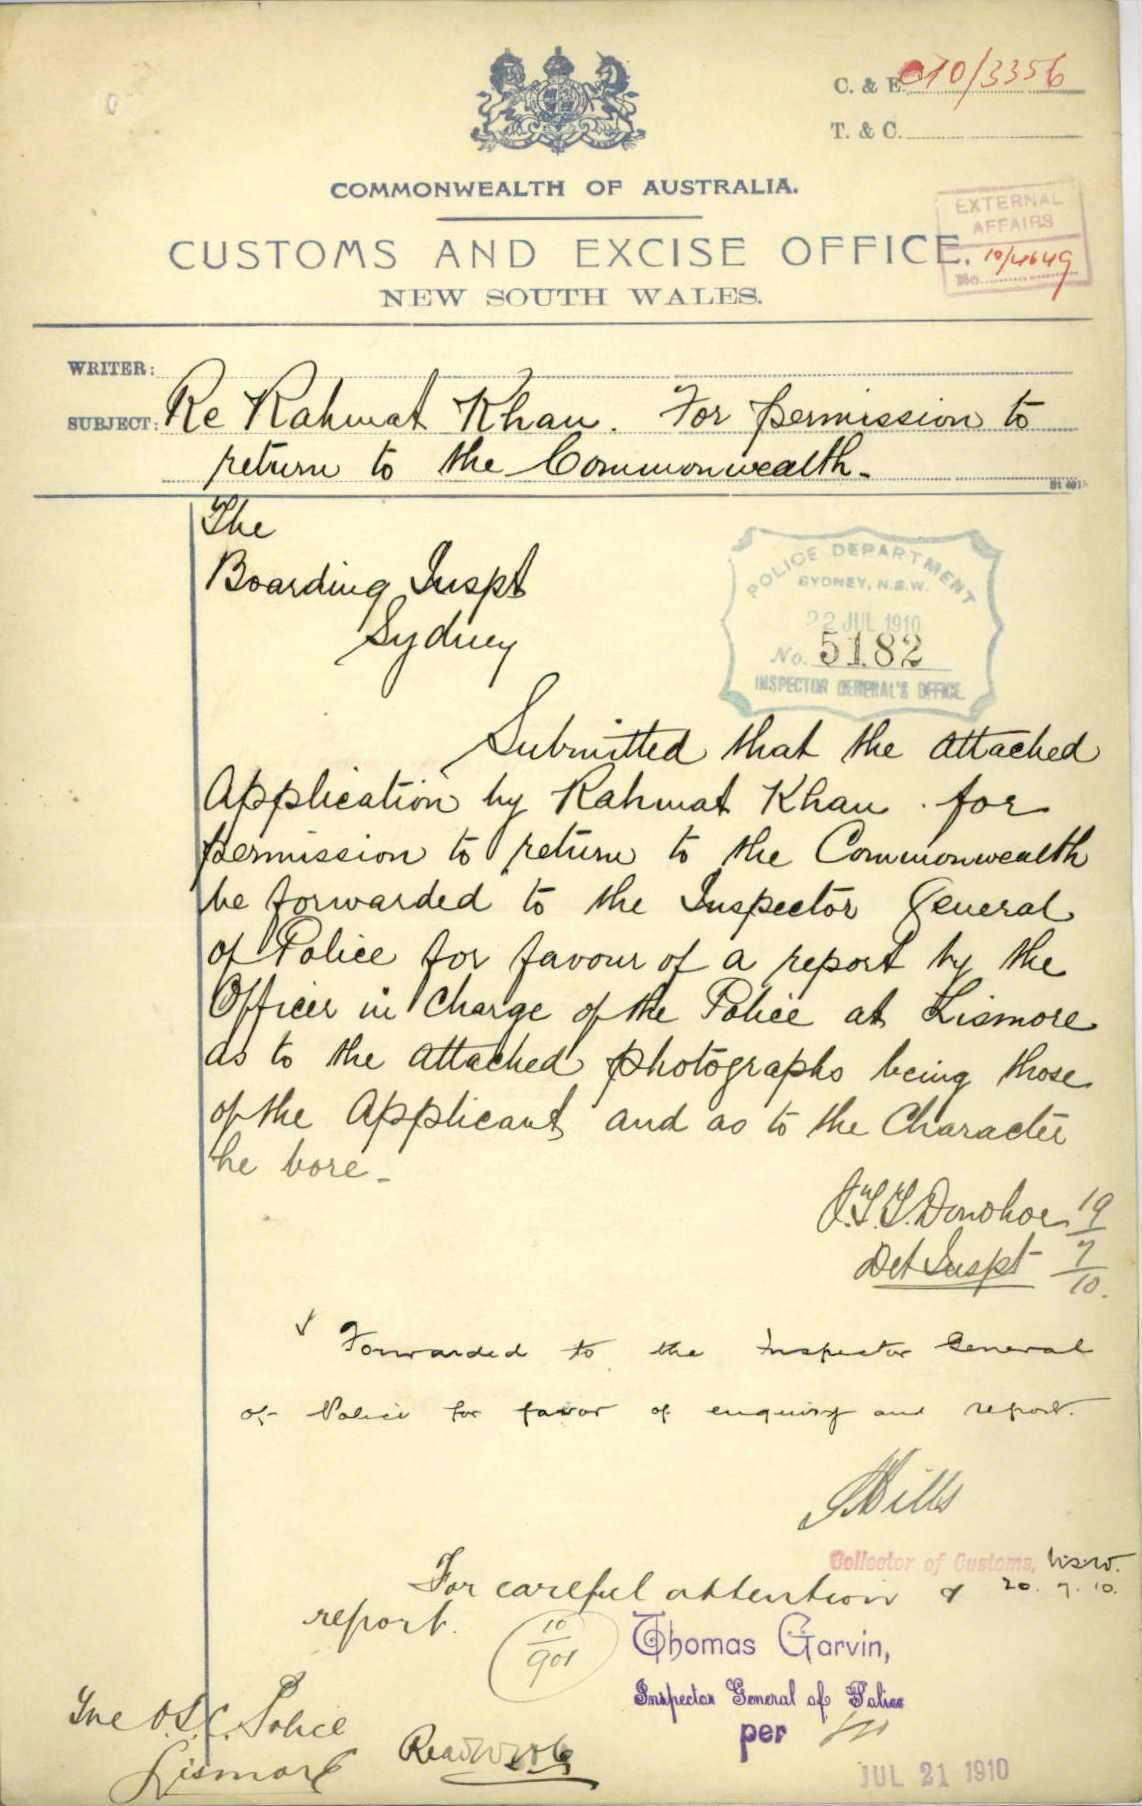 C. & E. 010/3356
T. & C.
COMMONWEALTH OF AUSTRALIA.
EXTERNAL
AFFAIRS
No. 10/4649
CUSTOMS AND EXCISE OFFICE.
NEW SOUTH WALES.
WRITER:
SUBJECT: Re Rahmat Khan. For permission to
return to the Commonwealth.
The
Boarding Inspt
Sydney
POLICE DEPARTMENT
SYDNEY, N.S.W.
22 JUL 1910
No. 5182
INSPECTOR GENERAL'S OFFICE
Submitted that the attached
Application by Rahmat Khan for
permission to return to the Commonwealth
be forwarded to the Inspector General
of Police for favour of a report by the
Officer in Charge of the Police at Lismore
as to the attached photographs being those
of the Applicant and as to the Character
he bore.
J.T.T. Donohoe 19/7/10.
Det Inspt
Forwarded to the Inspector General
of Police for favor of enquiry and report.
Mills
Collector of Customs, N.S.W.
20.7.10.
For careful attention &
report.
10/901
Thomas Garvin,
Inspector General of Police
per
The O.I.C. Police
Lismore
JUL 21 1910